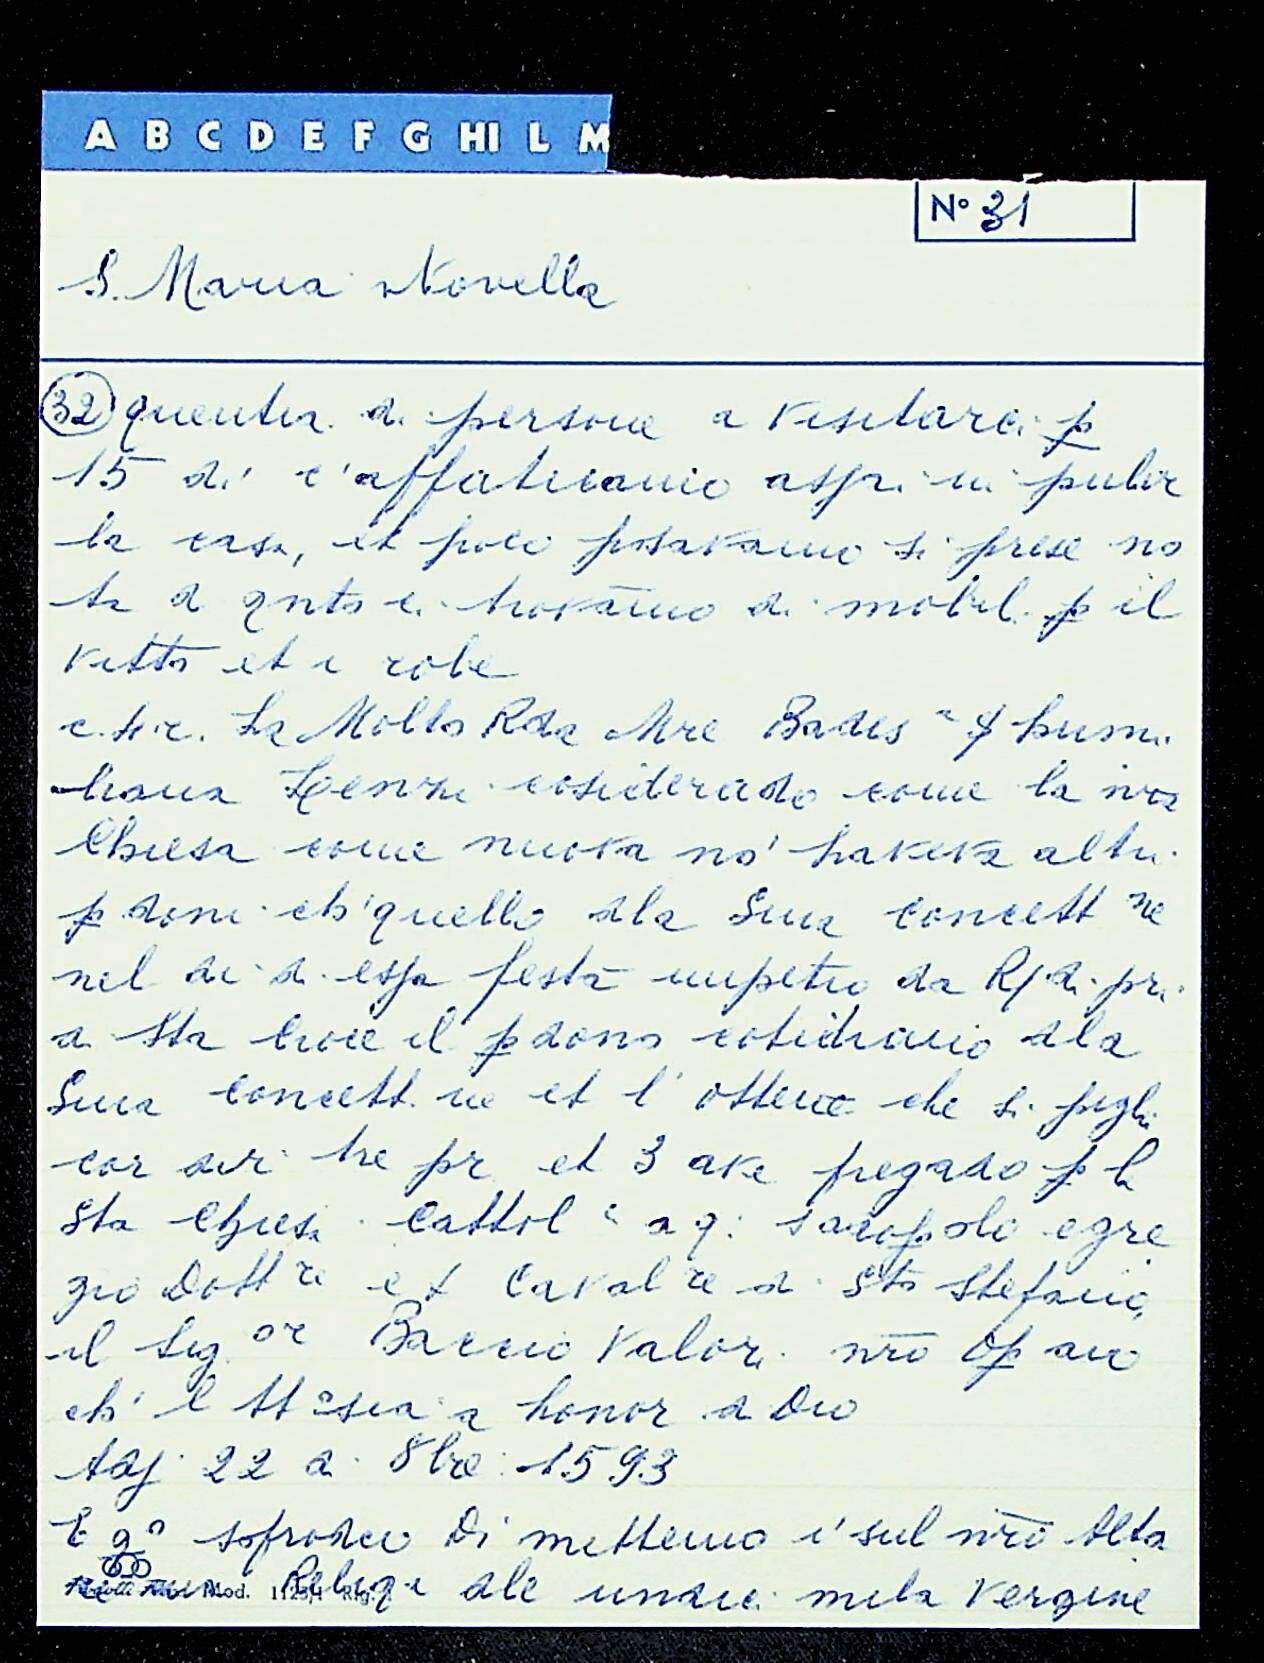 A B C D E F G HI L M
N° 31
S. Maria Novella
32 quentia di persone a visitarci p
15 di c'affaticamo aspri in pulir
la casa, et poco posavamo si prese no
ta d qnto ci trovamo di mobil. p il
vitto et i robe
c. 4. r. La Molto Rda Mre Bades a f humi
liana Lenzi cosiderado come la nra
Chiesa come nuova no' haveva altri
p doni ch' quello dla Sma concett ne
nel di d. essa festa impetro da R di pri
d Sta Croce il p dono cotidiano dla
Sma concett. ne et l' ottene che si pigli
cor dir tre pr et 3 ave pregado p la
Sta Chiesa Cattol ca a q: egre
gio Dott re et Caval re d Sto Stefano,
il Sig or Baccio Valori nro Op aio
ch' l tt o sia a honor d Dio
Adj 22 d 8bre 1593
E q o Di mettemo i' sul nro Alta
Reliqe dle undici mila Vergine
Mod. 1125/1 Rig.